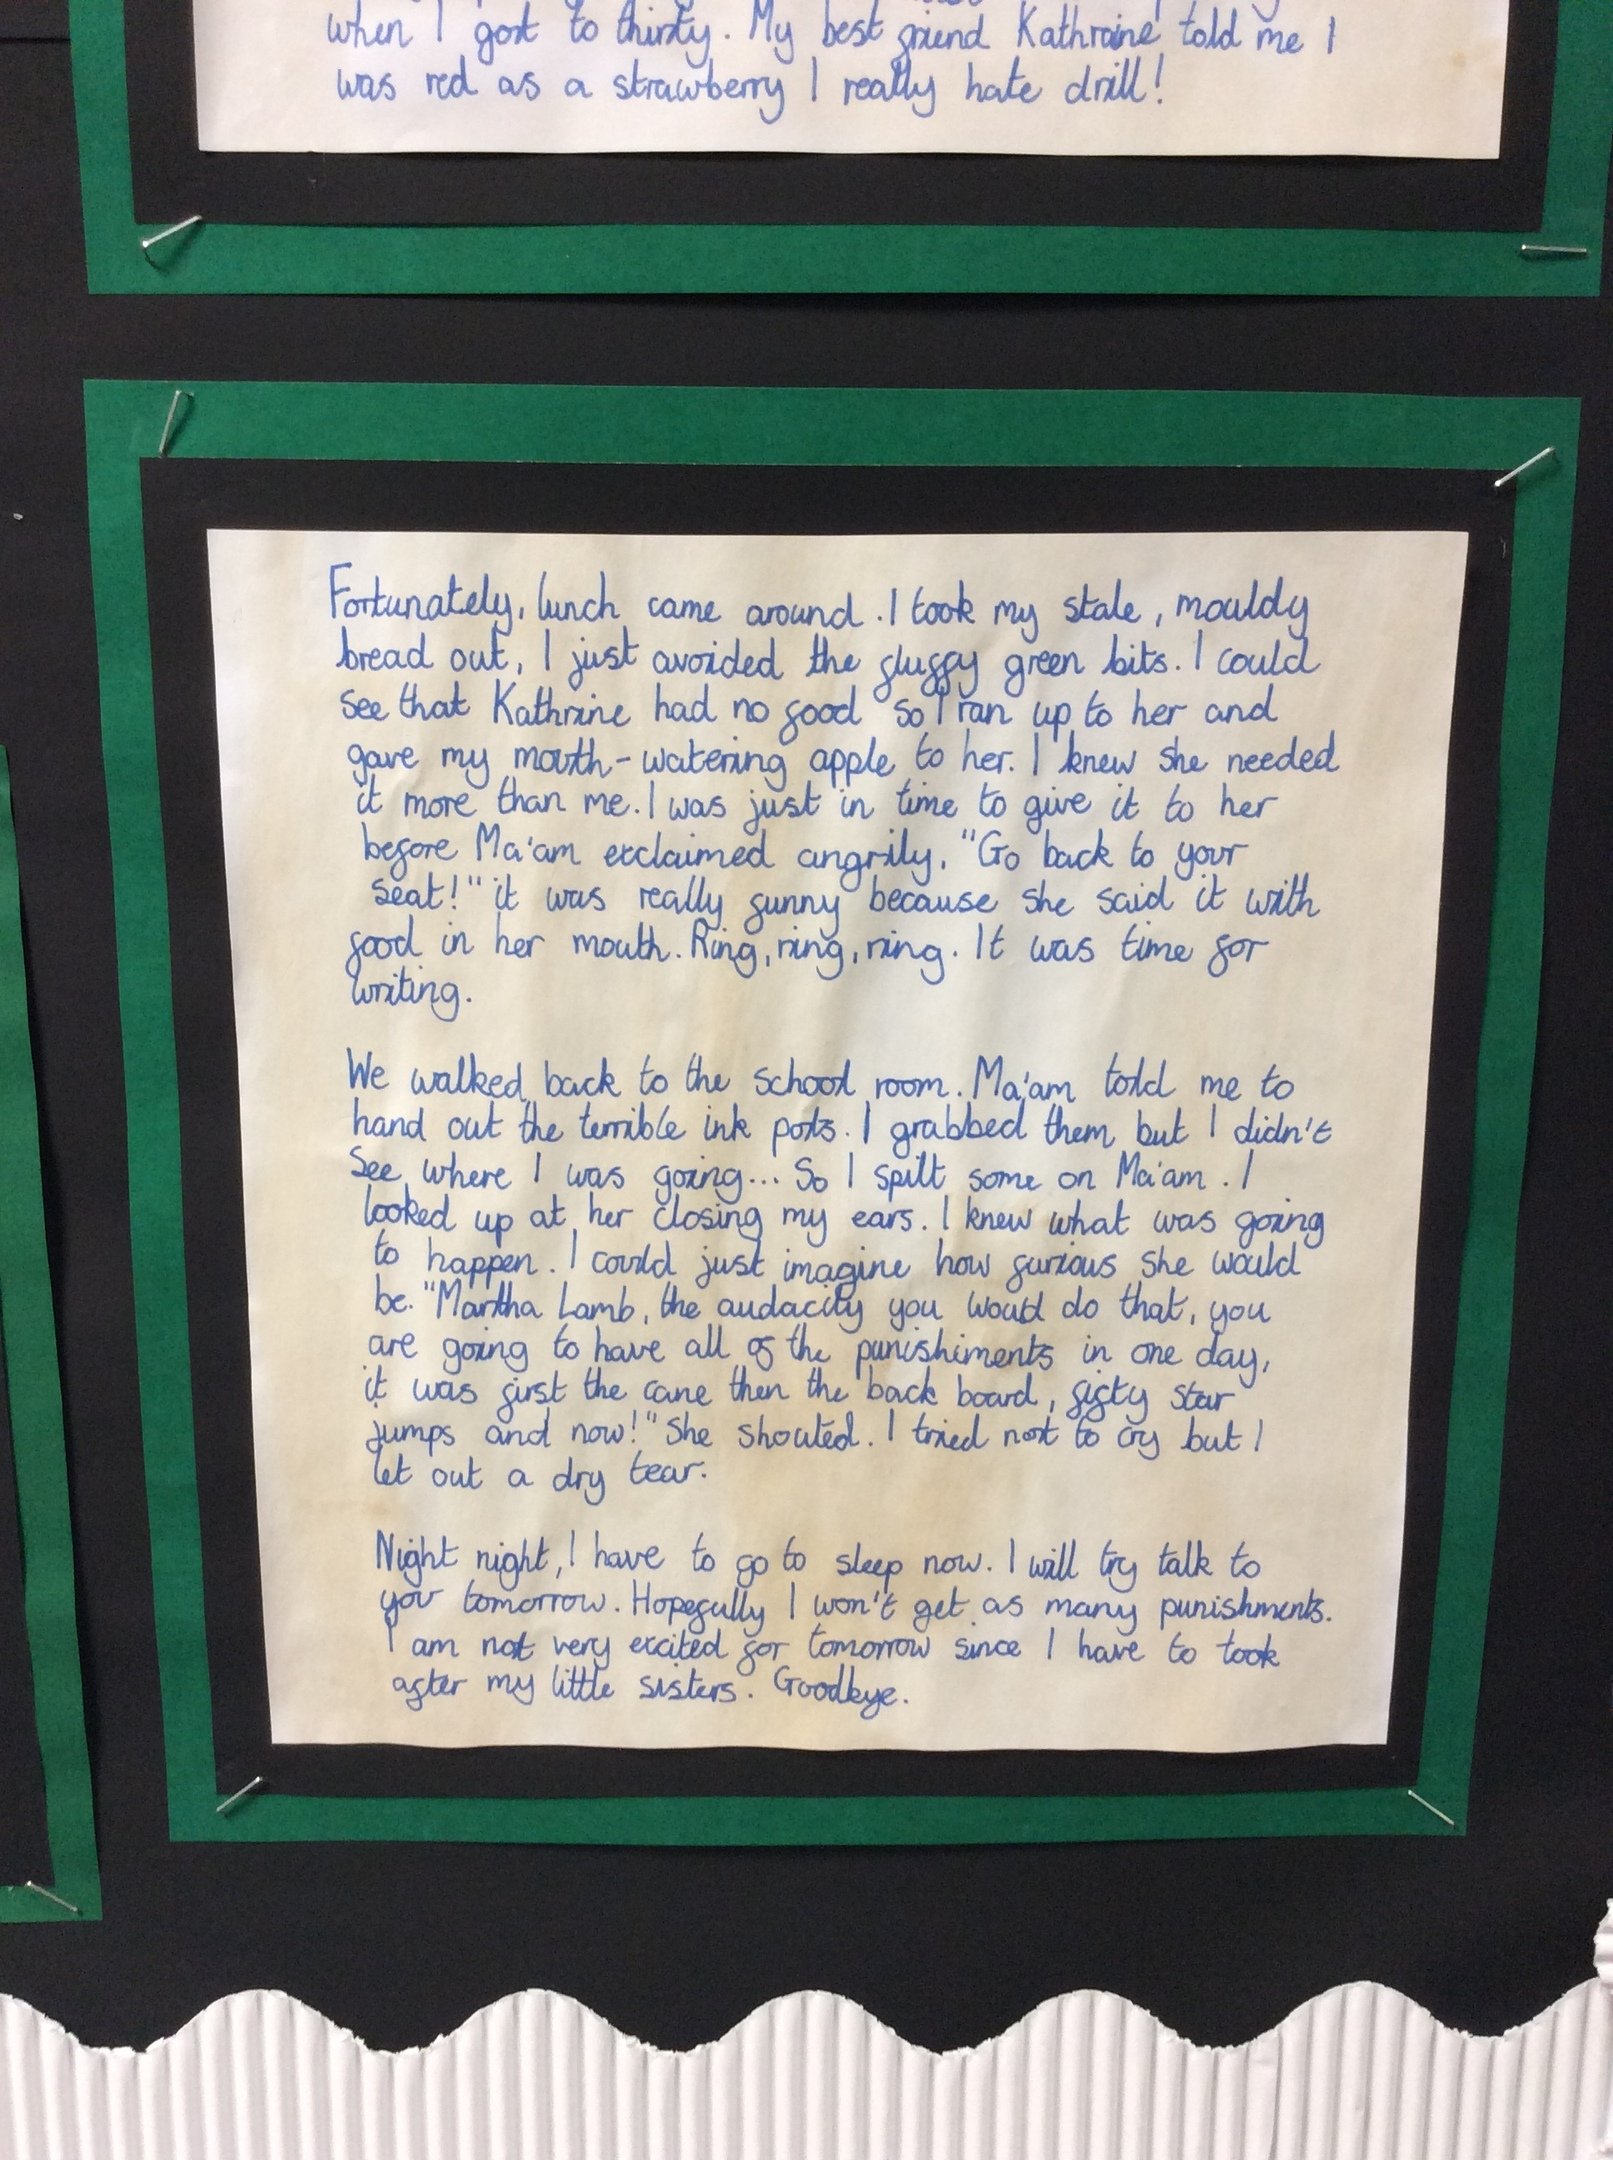 when I got to thirty. My best friend Kathraine told me I
was red as a strawberry I really hate drill!
Fortunately, lunch came around. I took my stale, mouldy
bread out, I just avoided the fluffy green bits. I could
see that Kathrine had no food so I ran up to her and
gave my mouth-watering apple to her. I knew she needed
it more than me. I was just in time to give it to her
before Ma'am exclaimed angrily, "Go back to your
seat!" it was really funny because she said it with
food in her mouth. Ring, ring, ring. It was time for
writing.
We walked back to the school room. Ma'am told me to
hand out the terrible ink pots. I grabbed them but I didn't
see where I was going... So I spilt some on Ma'am. I
looked up at her closing my ears. I knew what was going
to happen. I could just imagine how furious she would
be. "Martha Lamb, the audacity you would do that, you
are going to have all of the punishiments in one day,
it was first the cane then the back board, fifty star
jumps and now!" She shouted. I tried not to cry but I
let out a dry tear.
Night night, I have to go to sleep now. I will try talk to
you tomorrow. Hopefully I won't get as many punishments.
I am not very excited for tomorrow since I have to took
after my little sisters. Goodbye.